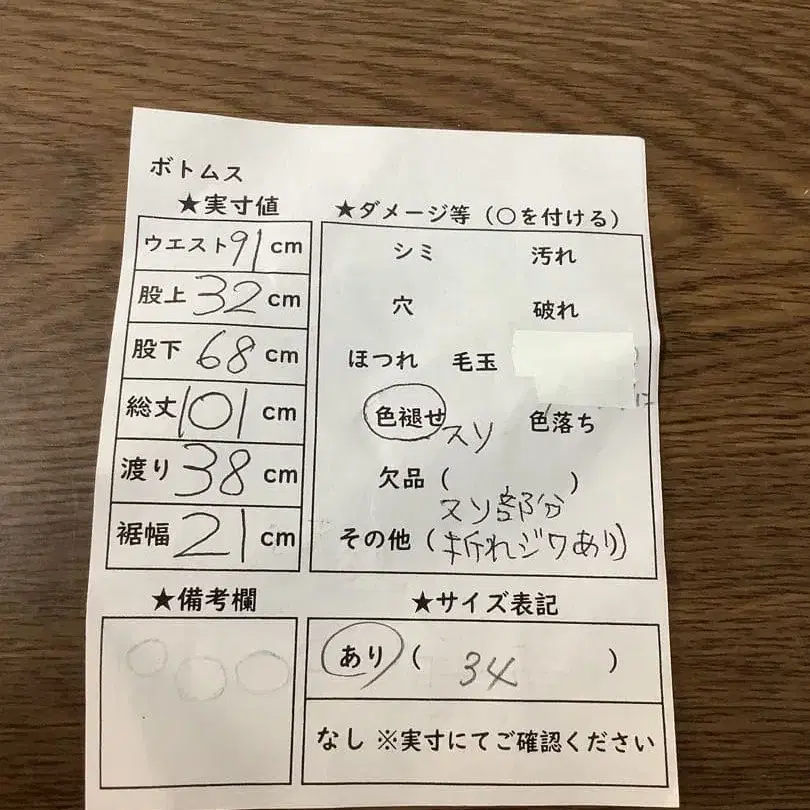 ボトムス
★実寸値
ウエスト91cm
股上32cm
股下68cm
総丈101cm
渡り38cm
裾幅21cm
★ダメージ等（○を付ける）
シミ 汚れ
穴 破れ
ほつれ 毛玉
色褪せ 色落ち
スソ
欠品（ ）
スソ部分
その他（折れジワあり）
★備考欄
★サイズ表記
あり（ 34 ）
なし ※実寸にてご確認ください